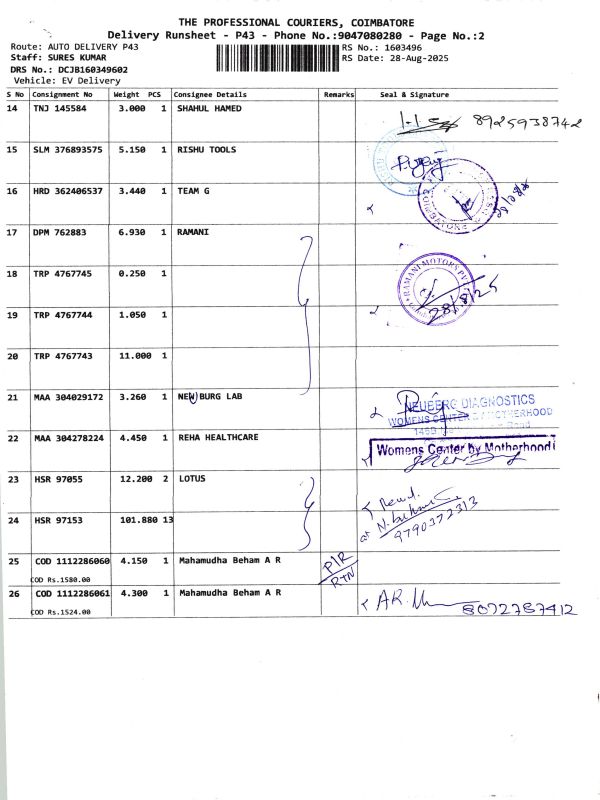 THE PROFESSIONAL COURIERS, COIMBATORE
Delivery Runsheet - P43 - Phone No.:9047080280 - Page No.:2
Route: AUTO DELIVERY P43
RS No.: 1603496
Staff: SURES KUMAR
RS Date: 28-Aug-2025
DRS No.: DCJB160349602
Vehicle: EV Delivery
S No Consignment No Weight PCS Consignee Details Remarks Seal & Signature
14 TNJ 145584 3.000 1 SHAHUL HAMED
8925938742
15 SLM 376893575 5.150 1 RISHU TOOLS
16 HRD 362406537 3.440 1 TEAM G
28/08/25
17 DPM 762883 6.930 1 RAMANI
18 TRP 4767745 0.250 1
RAMANI MOTORS
28/8/25
19 TRP 4767744 1.050 1
20 TRP 4767743 11.000 1
21 MAA 304029172 3.260 1 NEW BURG LAB
NEUBERG DIAGNOSTICS
WOMENS CENTER MOTHERHOOD
Road
22 MAA 304278224 4.450 1 REHA HEALTHCARE
Womens Center by Motherhood
23 HSR 97055 12.200 2 LOTUS
24 HSR 97153 101.880 13
9790372313
25 COD 1112286060 4.150 1 Mahamudha Beham A R
P/R
RTN
COD Rs.1580.00
26 COD 1112286061 4.300 1 Mahamudha Beham A R
AR.
8072787412
COD Rs.1524.00